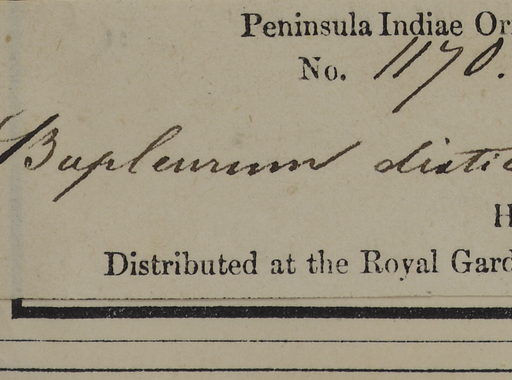 Peninsula Indiae Or
No. 1170.
Bupleurum distic
H
Distributed at the Royal Gard